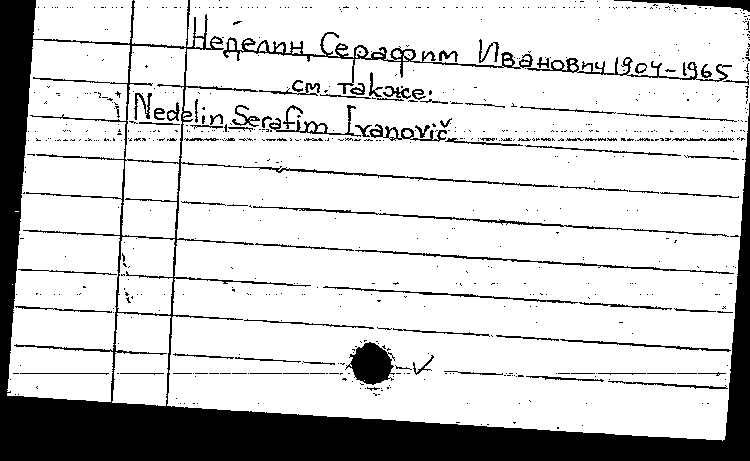 Неделин, Серафим Иванович 1904-1965
см. также:
Nedelin, Serafim Ivanovič